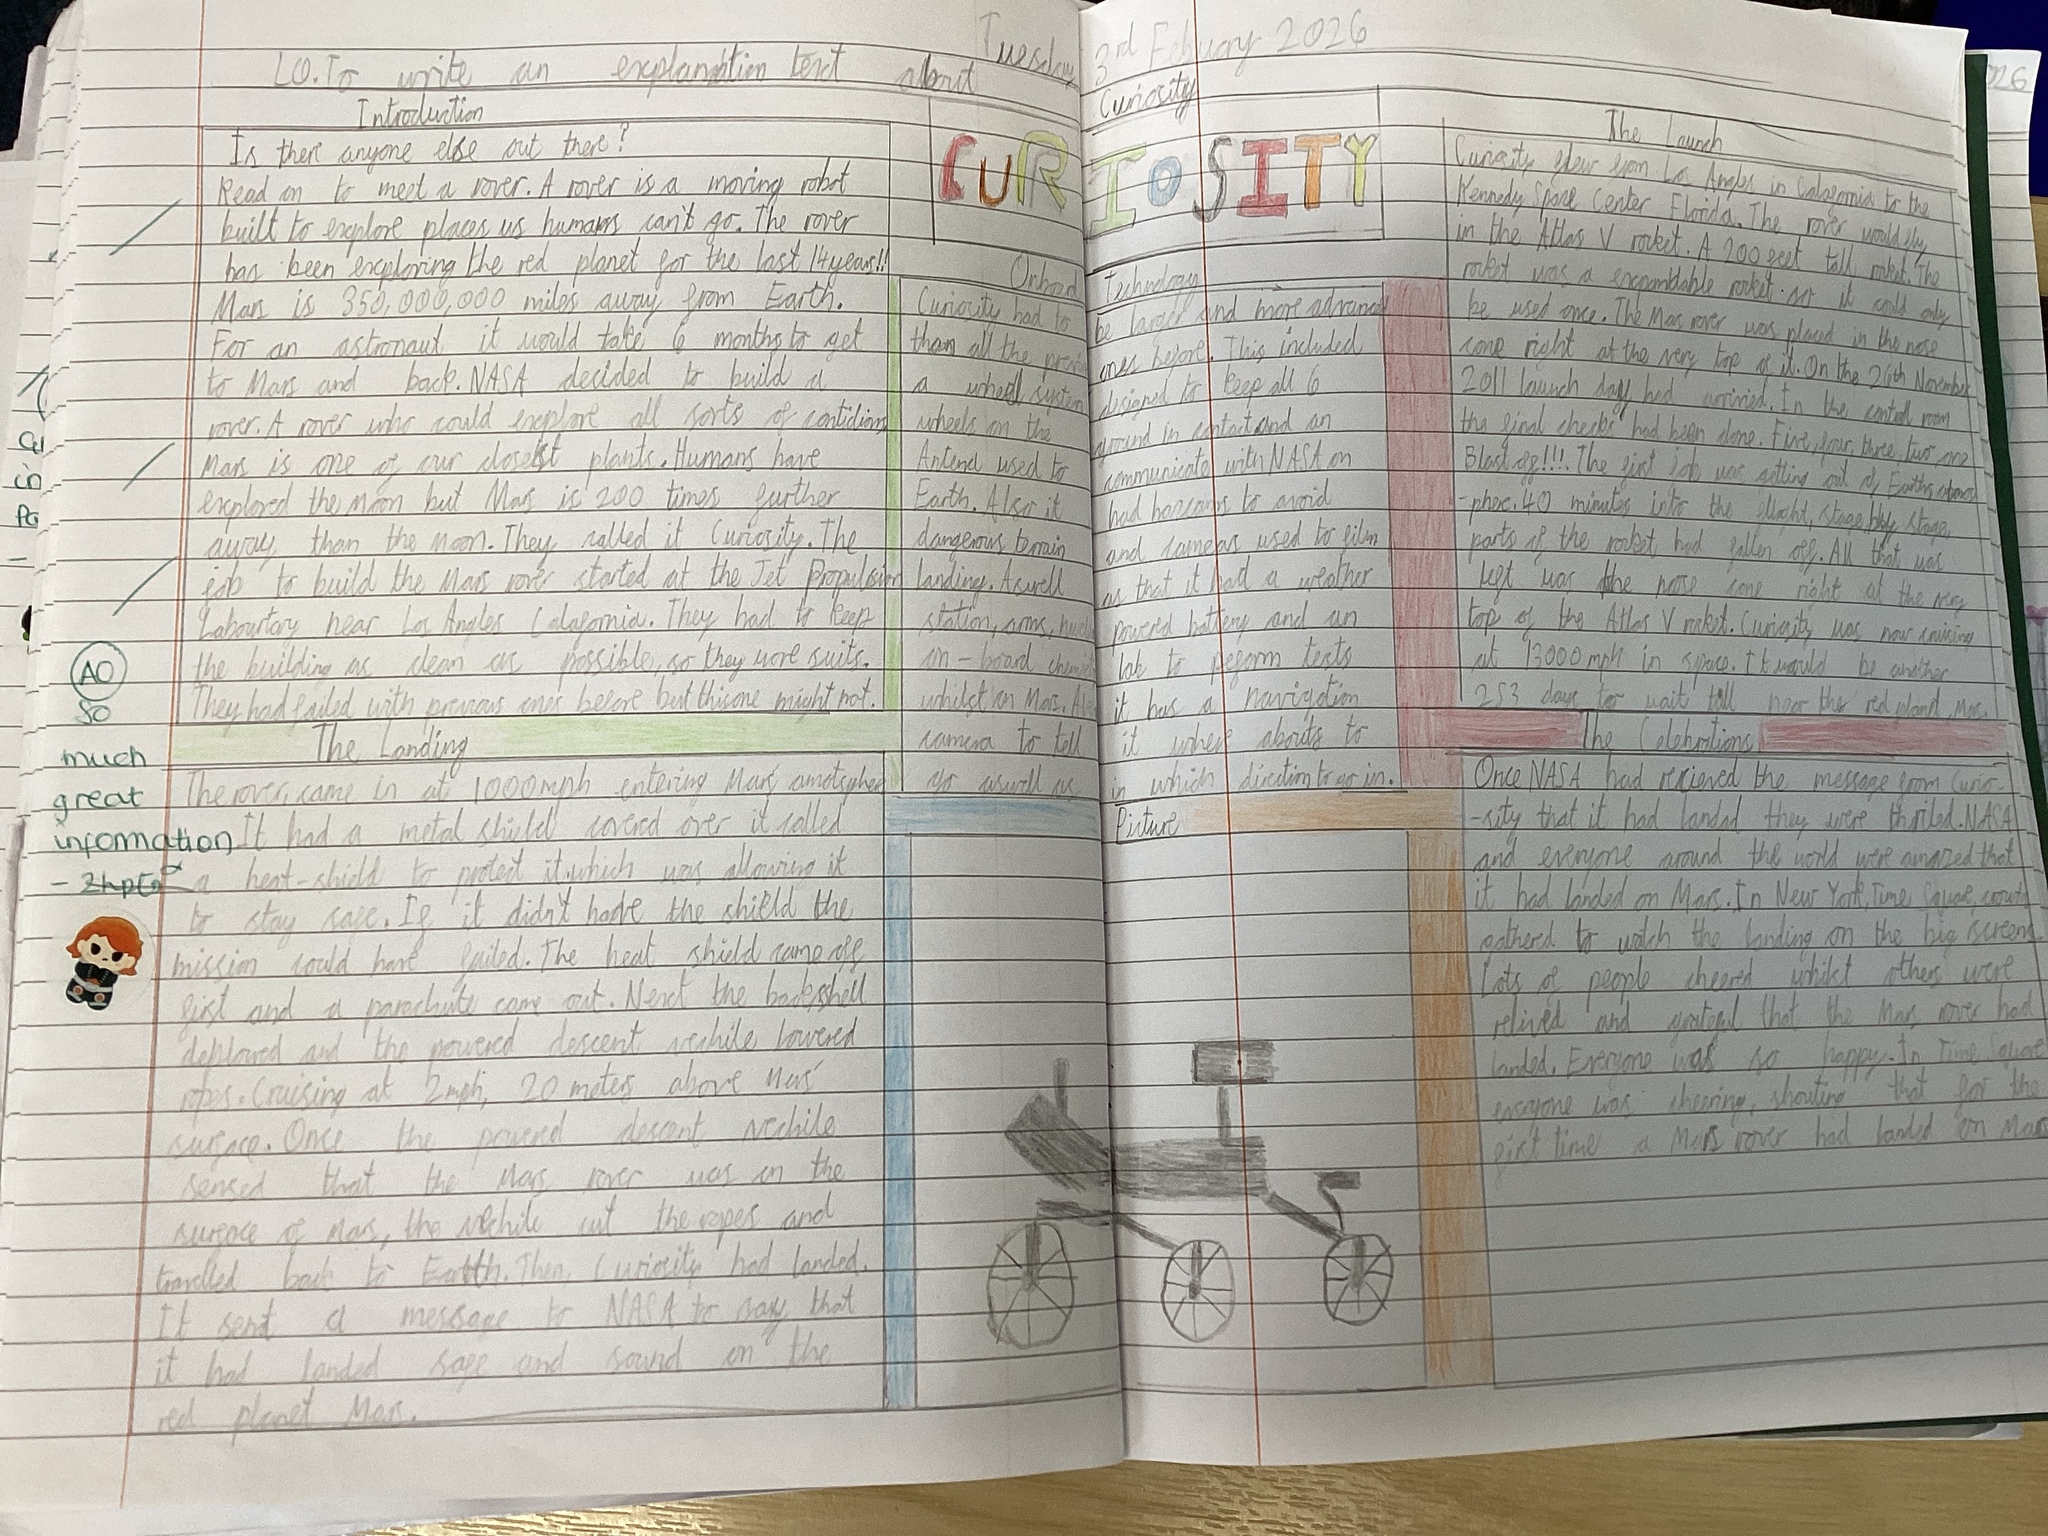 Tuesday 3rd Febuary 2026
LO.To write an explanation text about Curiosity
Introduction
Is there anyone else out there?
Read on to meet a rover. A rover is a moving robot
built to explore places us humans can't go. The rover
has been exploring the red planet for the last 14 years!!
Mars is 350,000,000 miles away from Earth.
For an astronaut it would take 6 months to get
to Mars and back. NASA decided to build a
rover. A rover who could explore all sorts of
Mars is one of our closest plants. Humans have
explored the Moon but Mars is 200 times further
away than the Moon. They called it Curiosity. The
job to build the Mars rover started at the Jet Propulsion
near Los Angles They had to keep
the building as clean as possible, so they wore suits.
They had failed with previous ones before but this one might not.
The Landing
The rover, came in at 1000mph entering Mars'
It had a metal shield covered over it called
a heat-shield to protect it which was allowing it
to stay safe. If it didn't have the shield the
mission could have failed. The heat shield came off
first and a parachute came out. Next the backshell
and the powered descent vechile lowered
ropes. Cruising at 2mph, 20 meters above Mars'
surface. Once the powered descent vechile
sensed that the Mars rover was on the
surface of Mars, the vechile cut the ropes and
travelled back to Earth. Then, Curiosity had landed.
It sent a message to NASA to say that
it had landed safe and sound on the
red planet Mars.
AO
So
much
great
information
CURIOSITY
Onboard Technology
Curiosity had to be larger and more advanced
than all the previ ones before. This included
a wheel system designed to keep all 6
wheels on the ground in contact and an
Antena used to communicate with NASA on
Earth. Also it had hazcams to avoid
dangerous terrain and cameras used to film
landing. Aswell as that it had a weather
station, arms, powered battery and an
on-board lab to perform tests
whilst on Mars. it has a navigation
camera to tell it where abouts to
go aswell as in which direction to go in.
Picture
The Launch
Curiosity flew from Los Angles in to the
Kennedy Space Center Florida. The rover would fly
in the Atlas V rocket. A 200 feet tall rocket. The
rocket was a expandable rocket so it could only
be used once. The Mars rover was placed in the nose
cone right at the very top of it. On the 26th November
2011 launch day had In the control room
the final checks had been done. Five, four, three, two, one
Blast off!!!! The first job was getting out of Earths
-phere. 40 minutes into the stage by stage,
parts of the rocket had fallen off. All that was
left was the nose cone right at the very
top of the Atlas V rocket. Curiosity was now cruising
at 13000mph in space. It would be another
253 days to wait till near the red Mars.
The Celebrations
Once NASA had recieved the message from Curio-
-sity that it had landed they were thriled. NASA
and everyone around the world were amazed that
it had landed on Mars. In New York, Time Square,
gathered to watch the landing on the big screen.
Lots of people cheered whilst others were
relived and grateful that the Mars rover had
landed. Everyone was so happy. In Time Square
everyone was cheering, shouting that for the
first time a Mars rover had landed on Mars